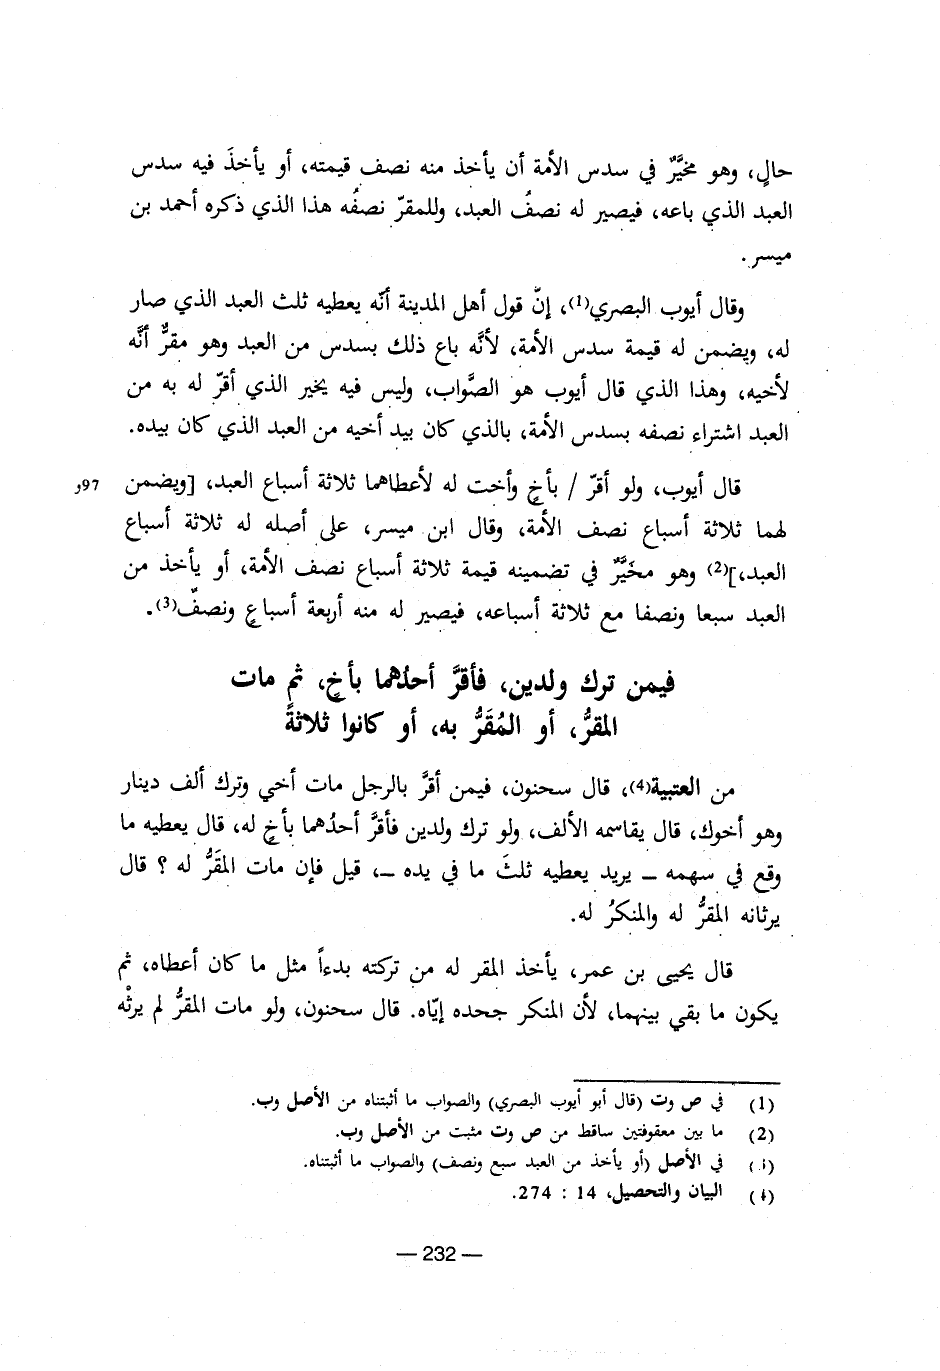 حالٍ، وهو مخيَّرٌ في سدس الأمة أن يأخذ منه نصف قيمته، أو يأخذَ فيه سدس
العبد الذي باعه، فيصير له نصفُ العبد، وللمقرّ نصفُه هذا الذي ذكره أحمد بن
ميسر.
وقال أيوب البصري(1)، إنّ قول أهل المدينة أنّه يعطيه ثلث العبد الذي صار
له، ويضمن له قيمة سدس الأمة، لأنَّه باع ذلك بسدس من العبد وهو مقرٌّ أنَّه
لأخيه، وهذا الذي قال أيوب هو الصَّواب، وليس فيه يخير الذي أقرّ له به من
العبد اشتراء نصفه بسدس الأمة، بالذي كان بيد أخيه من العبد الذي كان بيده.
قال أيوب، ولو أقرّ / بأخٍ وأخت له لأعطاهما ثلاثة أسباع العبد، [ويضمن
97و
لهما ثلاثة أسباع نصف الأمة، وقال ابن ميسر، على أصله له ثلاثة أسباع
العبد،](2) وهو مخَيَّرٌ في تضمينه قيمة ثلاثة أسباع نصف الأمة، أو يأخذ من
العبد سبعا ونصفا مع ثلاثة أسباعه، فيصير له منه أربعة أسباعٍ ونصفٌ(3).
فيمن ترك ولدين، فأقرَّ أحدُهما بأخٍ، ثم مات
المقرُّ، أو المُقَرُّ به، أو كانوا ثلاثةً
من العتبية(4)، قال سحنون، فيمن أقرَّ بالرجل مات أخي وترك ألف دينار
وهو أخوك، قال يقاسمه الألف، ولو ترك ولدين فأقرَّ أحدُهما بأخٍ له، قال يعطيه ما
وقع في سهمه – يريد يعطيه ثلثَ ما في يده –، قيل فإن مات المقَرُّ له ؟ قال
يرثانه المقرُّ له والمنكرُ له.
قال يحيى بن عمر، يأخذ المقر له من تركته بدءاً مثل ما كان أعطاه، ثم
يكون ما بقي بينهما، لأن المنكر جحده إيّاه. قال سحنون، ولو مات المقرُّ لم يرثْه
(1) في ص وت (قال أبو أيوب البصري) والصواب ما أثبتناه من الأصل وب.
(2) ما بين معقوفتين ساقط من ص وت مثبت من الأصل وب.
في الأصل (أو يأخذ من العبد سبع ونصف) والصواب ما أثبتناه.
البيان والتحصيل، 14 : 274.
— 232 —